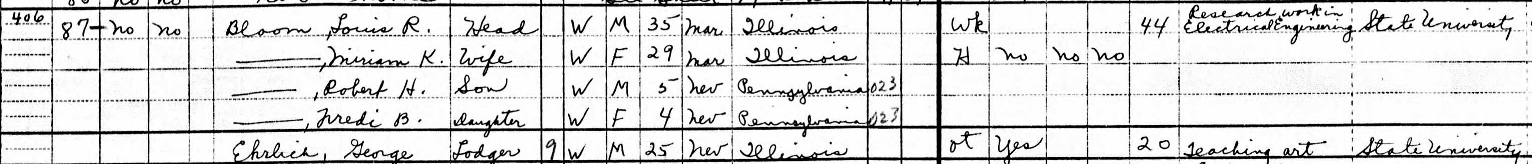 406 87 no no Bloom, Louis R. Head W M 35 mar Illinois Wk 44 Research work in Electrical Engineering State University
———, Miriam K. Wife W F 29 mar Illinois H no no no
———, Robert H. Son W M 5 nev Pennsylvania 023
———, Fredi B. Daughter W F 4 nev Pennsylvania 023
Ehrlich, George Lodger 9 W M 25 nev Illinois ot Yes 20 Teaching art State University